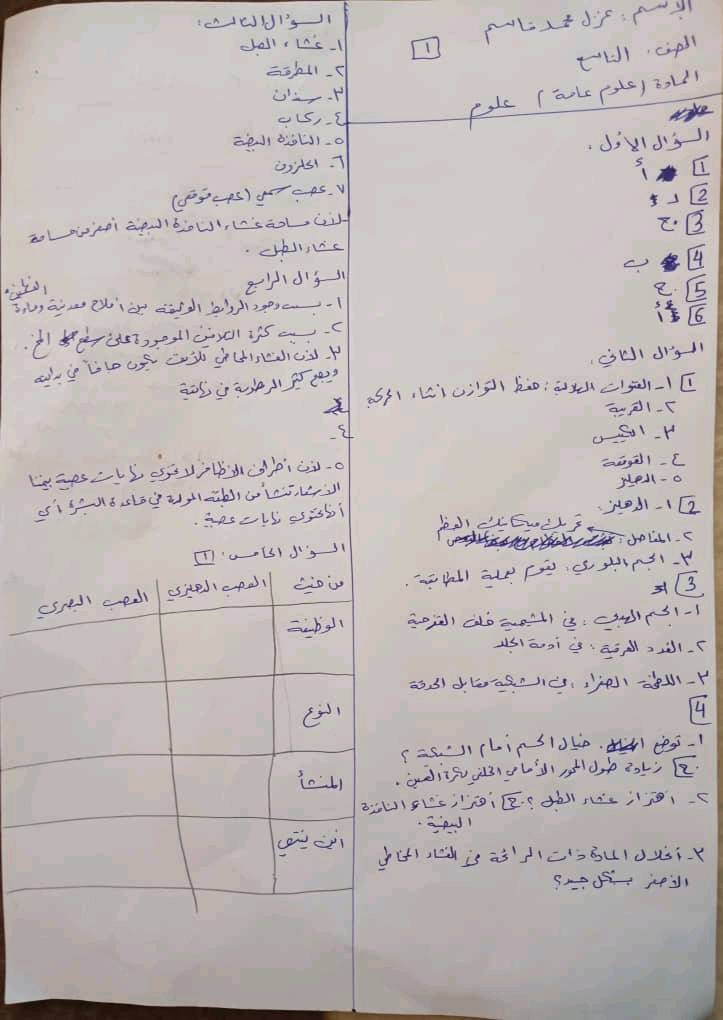 الإسم: غزل محمد قاسم
الصف: التاسع
1
المادة (علوم عامة) علوم
السؤال الأول:
1 أ
2 د
3 ج
4 ب
5 ج
6 أ
السؤال الثاني:
1 ١- القنوات الهلالية: حفظ التوازن أثناء الحركة
٢- القريبة
٣- الكييس
٤- القوقعة
٥- الدهليز
2 ١- الدهليز:
٢- المفاصل: تحريك ميكانيك العظم
٣- الجسم البلوري: يقوم بعملية المطابقة.
3
١- الجسم الهدبي: في المشيمية خلف القزحية
٢- الغدد العرقية: في أدمة الجلد
٣- اللطخة الصفراء: في الشبكية مقابل الحدقة
4
١- توضع خيال الجسم أمام الشبكة؟
ج زيادة طول المحور الأمامي الخلفي لكرة العين.
٢- اهتزاز غشاء الطبل؟ ج اهتزاز غشاء النافذة
البيضية.
٣- أنحلال المادة ذات الرائحة في الغشاء المخاطي
الأصفر بشكل جيد؟
السؤال الثالث:
١- غشاء الطبل
٢- المطرقة
٣- سندان
٤- ركاب
٥- النافذة البيضية
٦- الحلزون
٧- عصب سمعي (عصب قوقعي)
لأن مساحة غشاء النافذة البيضية أصغر من مساحة
غشاء الطبل.
السؤال الرابع
١- بسبب وجود الروابط الوثيقة بين أملاح معدنية ومادة
٢- بسبب كثرة التلافيف الموجودة على سطح المخ.
٣- لأن الغشاء المخاطي للأنف يكون جافاً في بدايته
ويصبح كثير الرطوبة في نهايته
٤-
٥- لأن أطراف الأظافر لا تحتوي نهايات عصبية بينما
الأشعار تنشأ من الطبقة المولدة في قاعدة البشرة أي
أنها تحتوي نهايات عصبية.
السؤال الخامس:
من حيث العصب الدهليزي العصب البصري
الوظيفة
النوع
المنشأ
أين ينتهي